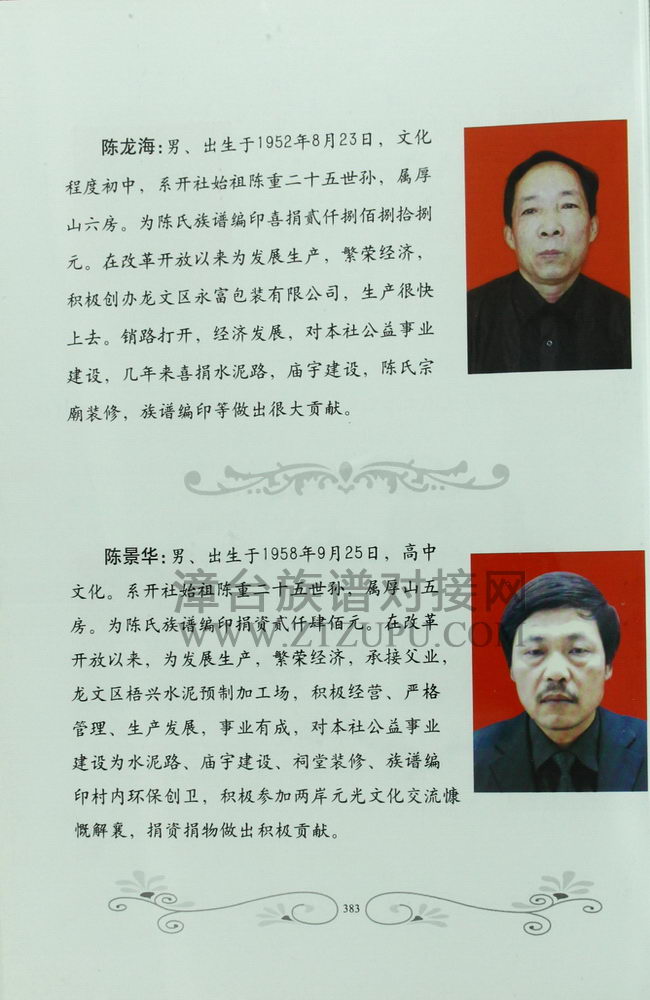 陈龙海：男、出生于1952年8月23日，文化
程度初中，系开社始祖陈重二十五世孙，属厚
山六房。为陈氏族谱编印喜捐貳仟捌佰捌拾捌
元。在改革开放以来为发展生产，繁荣经济，
积极创办龙文区永富包装有限公司，生产很快
上去。销路打开，经济发展，对本社公益事业
建设，几年来喜捐水泥路，庙宇建设，陈氏宗
廟装修，族谱编印等做出很大贡献。
陈景华：男、出生于1958年9月25日，高中
文化。系开社始祖陈重二十五世孙，属厚山五
房。为陈氏族谱编印捐资貳仟肆佰元。在改革
开放以来，为发展生产，繁荣经济，承接父业，
龙文区梧兴水泥预制加工场，积极经营、严格
管理、生产发展，事业有成，对本社公益事业
建设为水泥路、庙宇建设、祠堂装修、族谱编
印村内环保创卫，积极参加两岸元光文化交流慷
慨解襄，捐资捐物做出积极贡献。
漳台族谱对接网
WWW.ZTZUPU.COM
383